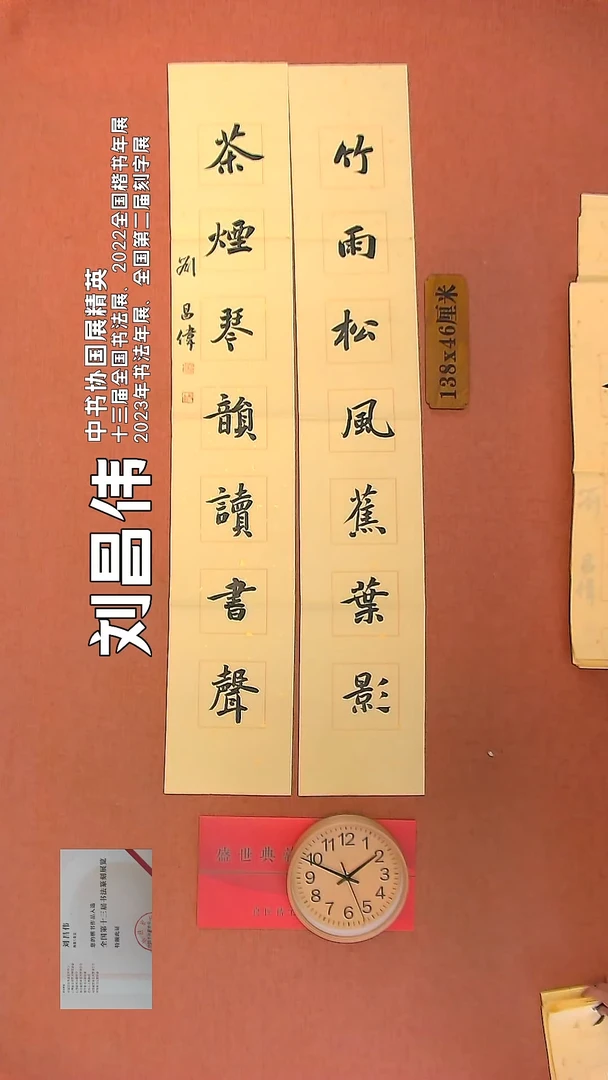 竹雨松風蕉葉影
茶煙琴韻讀書聲
劉昌偉
138x46厘米
刘昌伟
中书协国展精英
十三届全国书法展、2022全国楷书年展
2023年书法年展、全国第二届刻字展
盛世典
12
1
2
3
4
5
6
7
8
9
10
11
刘昌伟
您的楷书作品入选
全国第十三届书法篆刻展览
特颁此证